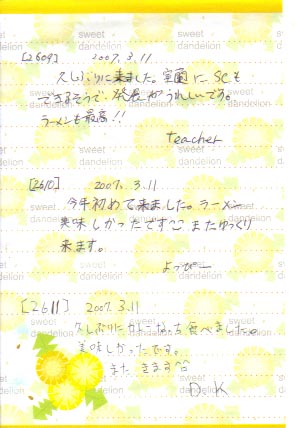 sweet dandelion
[2609] 2007. 3. 11
久しぶりに来ました。室蘭に、SCも
できるそうで、発展がうれしいです。
ラーメンも最高!!
teacher
[2610] 2007. 3. 11
今年初めて来ました。ラーメン
美味しかったです またゆっくり
来ます。
よっぴー
[2611] 2007. 3. 11
久しぶりに 食べました。
美味しかったです。
また きます^^
D. K